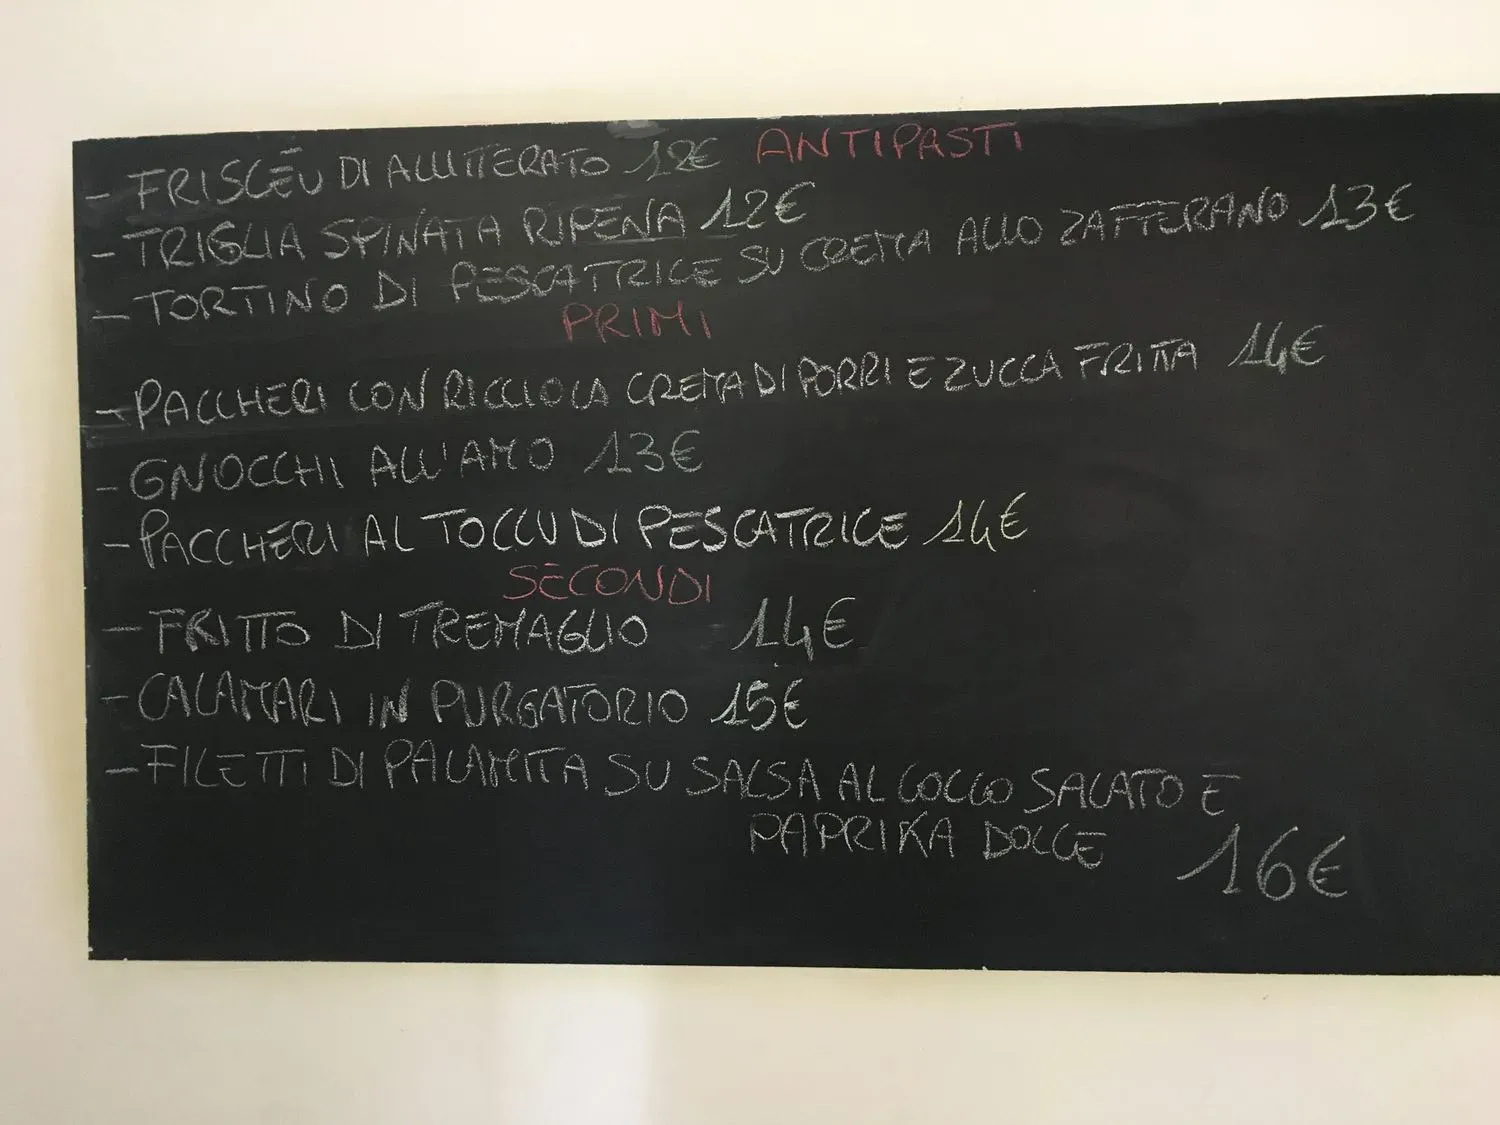 ANTIPASTI
- FRISCEU DI ALLITTERATO 12€
- TRIGLIA SPINATA RIPENA 12€
- TORTINO DI PESCATRICE SU CREMA ALLO ZAFFERANO 13€
PRIMI
- PACCHERI CON RICCIOLA CREMA DI PORRI E ZUCCA FRITTA 14€
- GNOCCHI ALL'AMO 13€
- PACCHERI AL TOCCU DI PESCATRICE 14€
SECONDI
- FRITTO DI TREMAGLIO 14€
- CALAMARI IN PURGATORIO 15€
- FILETTI DI PALAMITA SU SALSA AL COCCO SALATO E
PAPRIKA DOLCE 16€